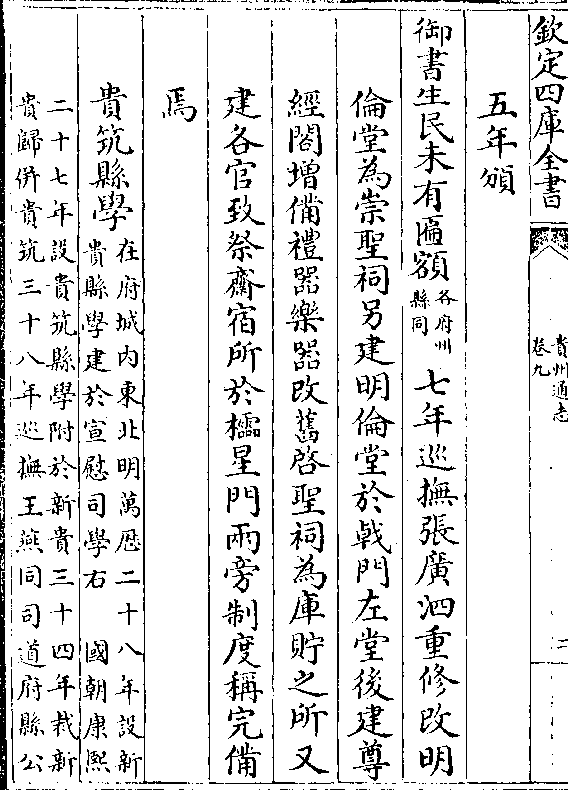 欽定四庫全書
貴州通志
卷九
二
五年頒
御書生民未有匾額各府州
縣同七年巡撫張廣泗重修改明
倫堂為崇聖祠另建明倫堂於戟門左堂後建尊
經閣增備禮器樂器改舊啓聖祠為庫貯之所又
建各官致祭齋宿所於櫺星門兩旁制度稱完備
焉
貴筑縣學在府城内東北明萬厯二十八年設新
貴縣學建於宣慰司學右 國朝康熙
二十七年設貴筑縣學附於新貴三十四年裁新
貴歸併貴筑三十八年巡撫王燕同司道府縣公